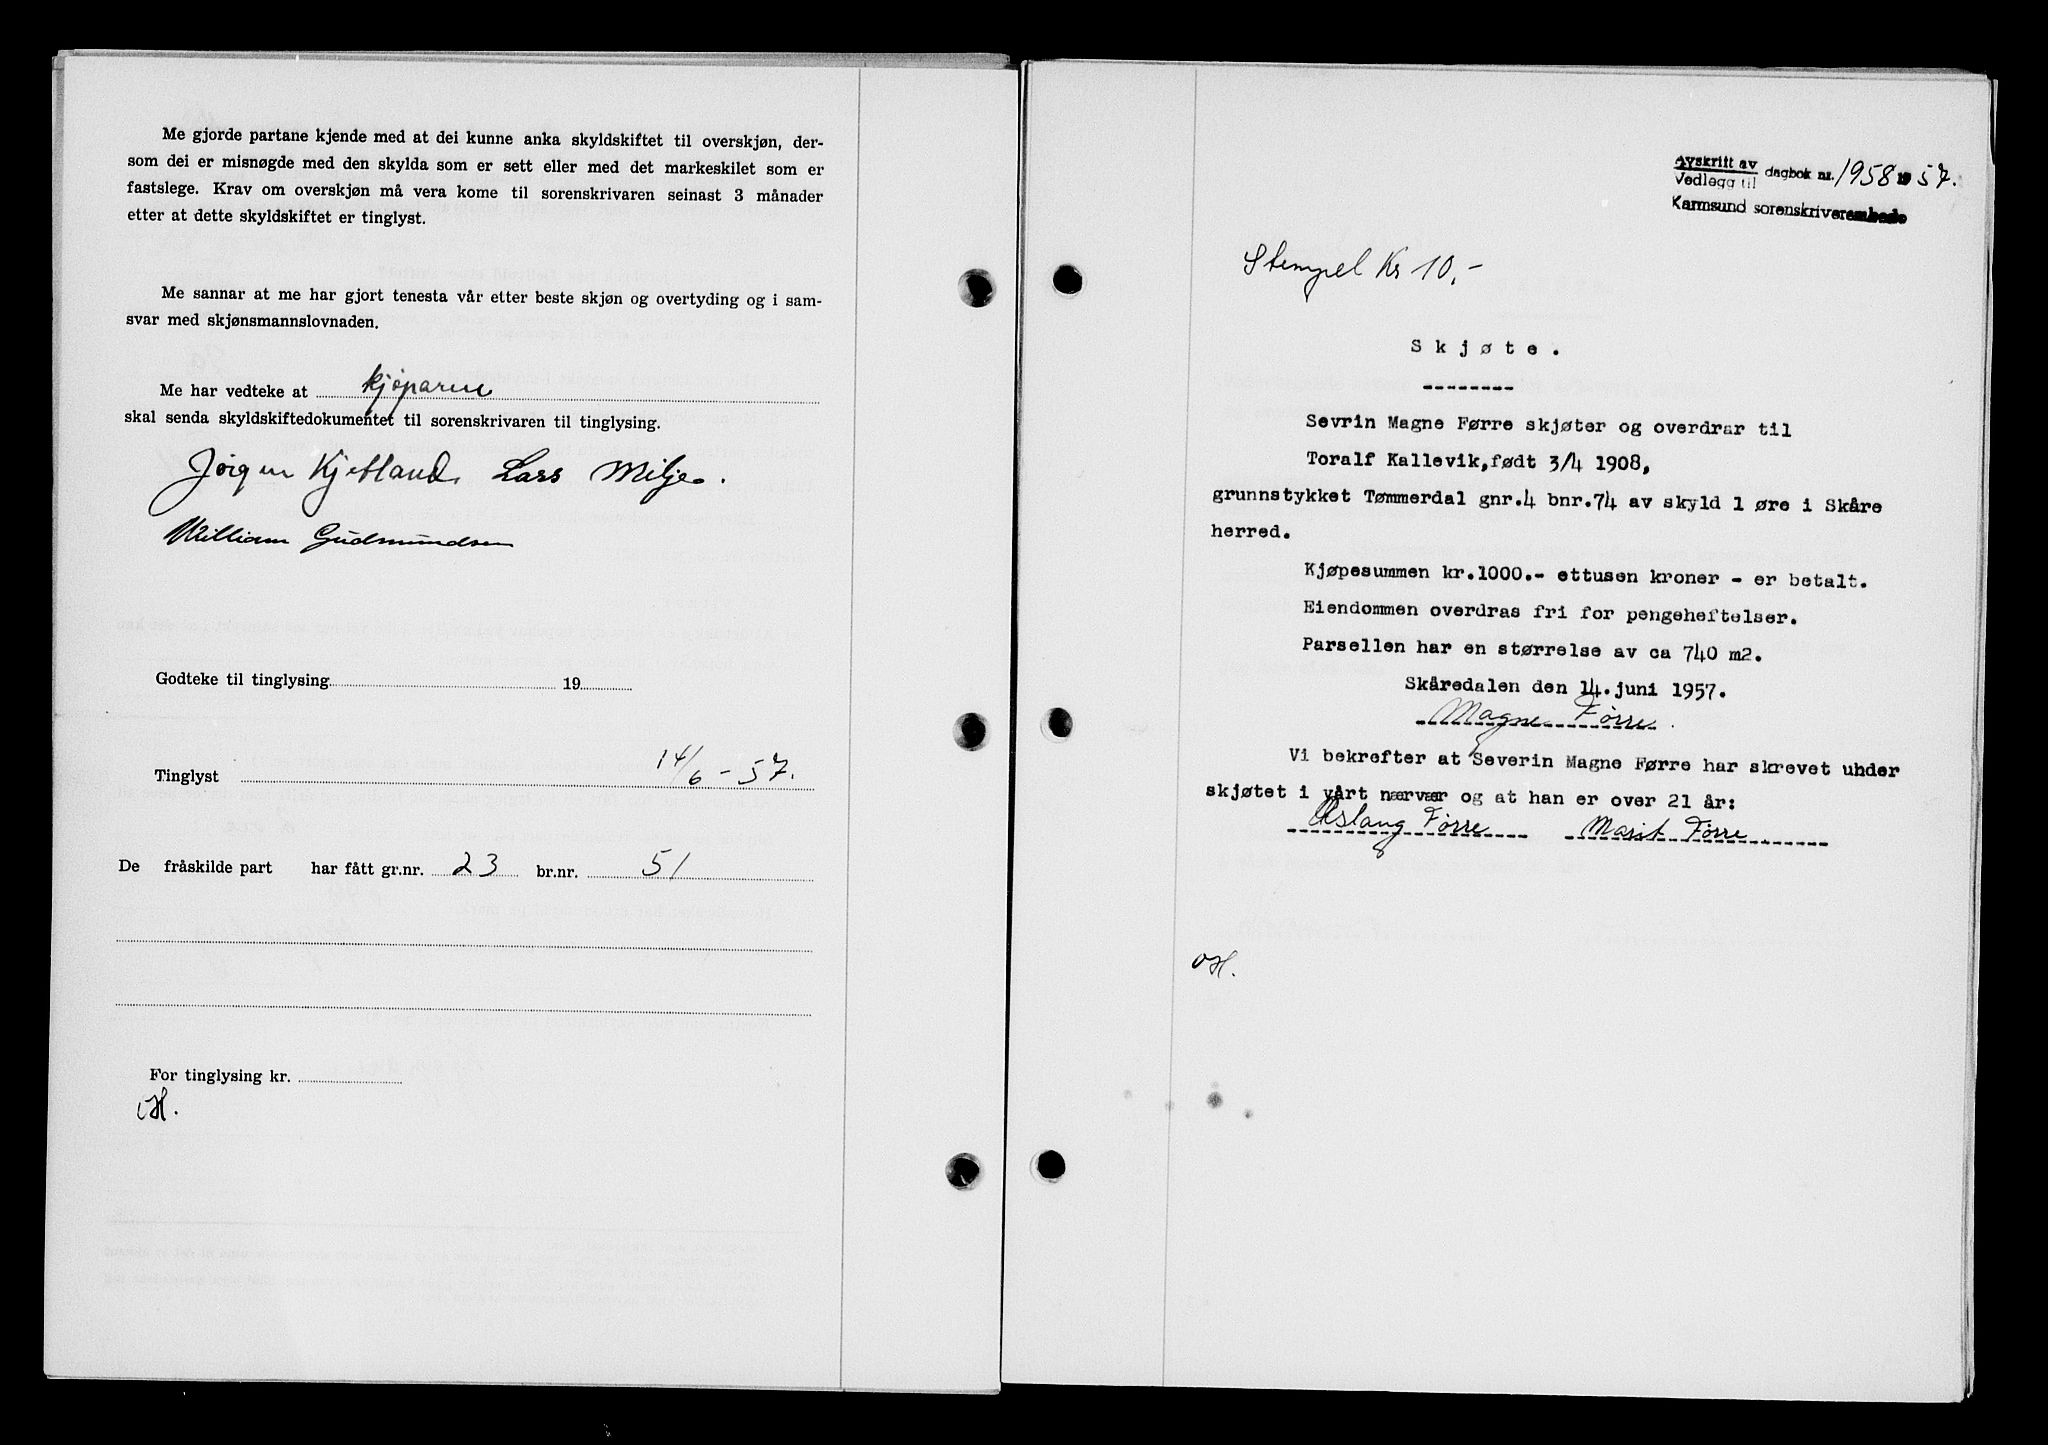 Me gjorde partane kjende med at dei kunne anka skyldskiftet til overskjøn, der-
som dei er misnøgde med den skylda som er sett eller med det markeskilet som er
fastslege. Krav om overskjøn må vera kome til sorenskrivaren seinast 3 månader
etter at dette skyldskiftet er tinglyst.
Me sannar at me har gjort tenesta vår etter beste skjøn og overtyding og i sam-
svar med skjønsmannslovnaden.
Me har vedteke at kjøparen
skal senda skyldskiftedokumentet til sorenskrivaren til tinglysing.
Jørgen Kjetland. Lars Milje.
William Gudmundsen
Godteke til tinglysing 19
Tinglyst 14/6-57.
De fråskilde part har fått gr.nr. 23 br.nr. 51
For tinglysing kr.
Avskrift av
Vedlegg til dagbok nr. 1958 19 57.
Karmsund sorenskriverembede
Stempel Kr 10,-
Skjøte.
Sevrin Magne Førre skjøter og overdrar til
Toralf Kallevik, født 3/4 1908,
grunnstykket Tømmerdal gnr.4 bnr.74 av skyld 1 øre i Skåre
herred.
Kjøpesummen kr.1000.- ettusen kroner - er betalt.
Eiendommen overdras fri for pengeheftelser.
Parsellen har en størrelse av ca 740 m2.
Skåredalen den 14.juni 1957.
Magne Førre.
Vi bekrefter at Severin Magne Førre har skrevet uhder
skjøtet i vårt nærvær og at han er over 21 år:
Aslaug Førre Marit Førre